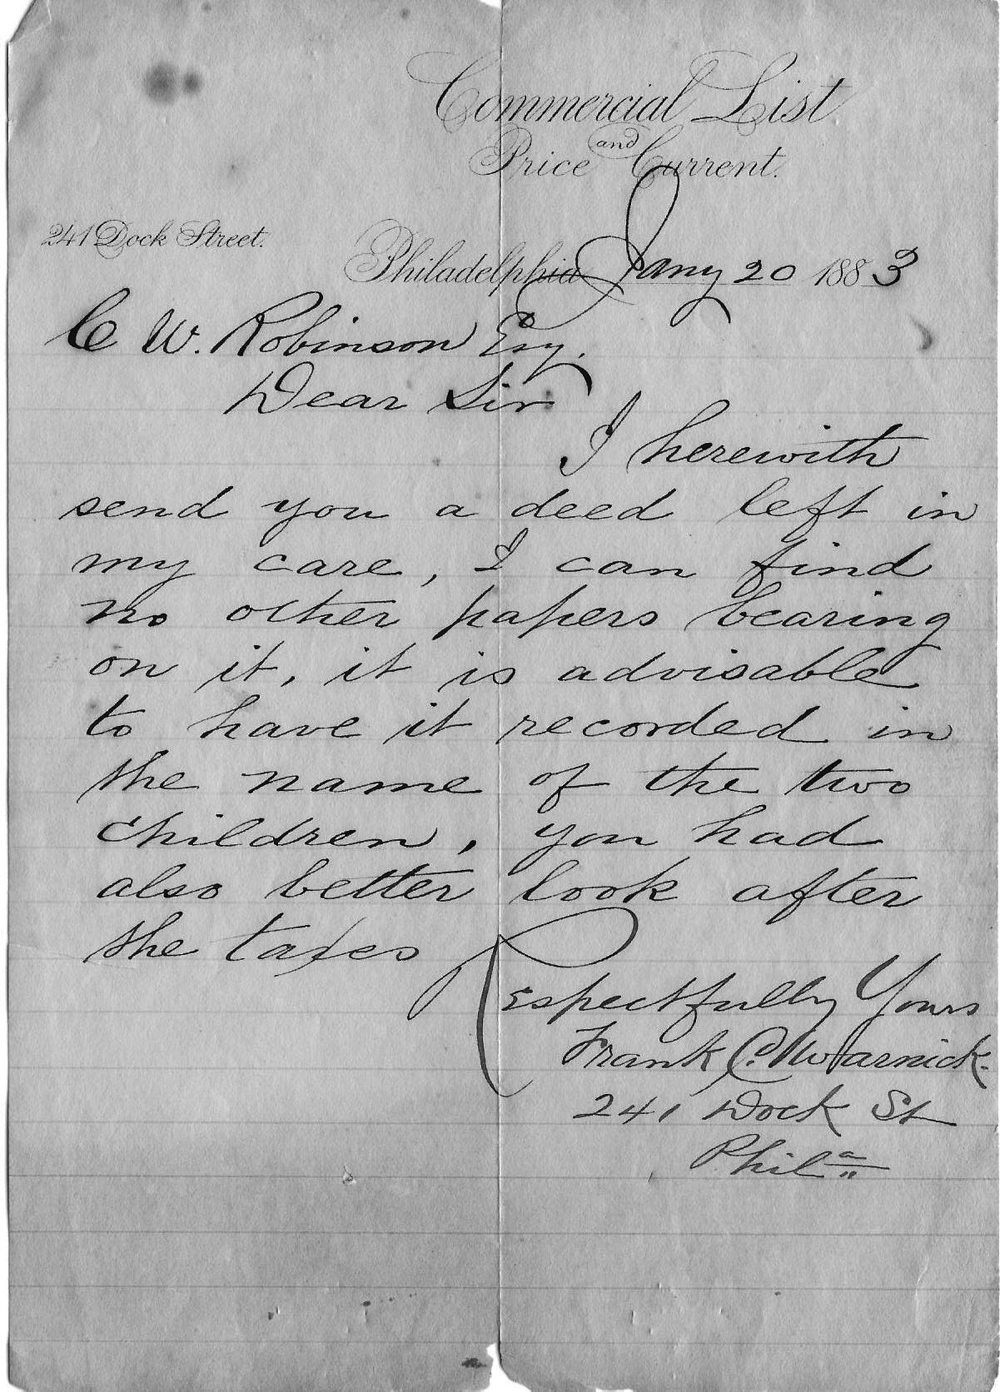 Commercial List
and
Price Current.
241 Dock Street.
Philadelphia Jany 20 1883
C W. Robinson Esq.
Dear Sir
I herewith
send you a deed left in
my care, I can find
no other papers bearing
on it, it is advisable
to have it recorded in
the name of the two
children, you had
also better look after
the taxes
Respectfully Yours
Frank C. Warnick.
241 Dock St
Phila